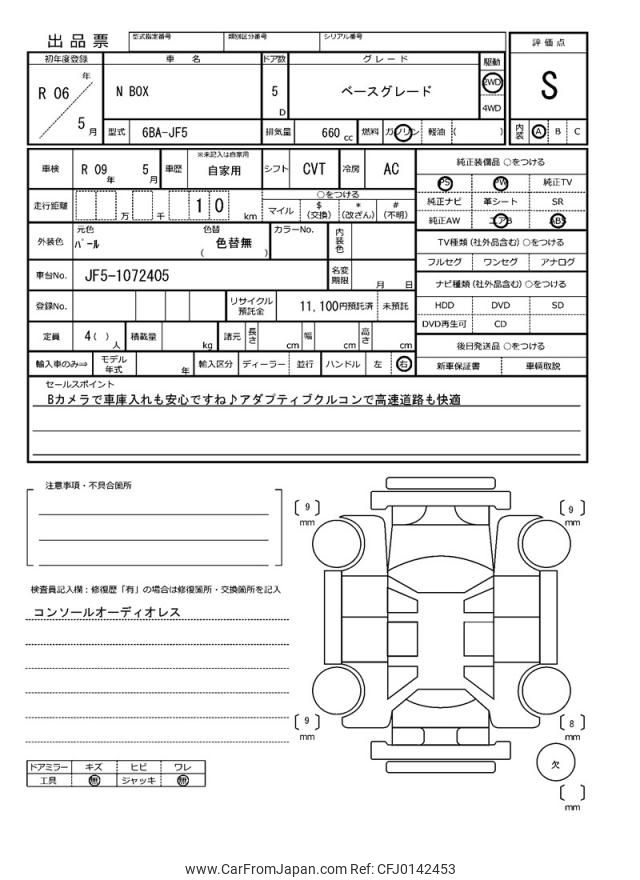 出品票
型式指定番号 類別区分番号 シリアル番号
評価点
S
内装 A B C
初年度登録 車名 ドア数 グレード 駆動
R 06 年 5 月
N BOX
5 D
ベースグレード
2WD
4WD
型式 6BA-JF5 排気量 660 cc 燃料 ガソリン 軽油 ( )
車検 R 09 年 5 月 車歴 ※未記入は自家用 自家用 シフト CVT 冷房 AC
走行距離 万 千 1 0 km
○をつける
マイル $ (交換) * (改ざん) # (不明)
外装色 元色 パール 色替 色替無 ( ) カラーNo. 内装色
車台No. JF5-1072405 名変期限 月 日
登録No. リサイクル預託金 11,100円預託済 未預託
定員 4( ) 人 積載量 kg 諸元 長さ cm 幅 cm 高さ cm
輸入車のみ⇒ モデル年式 年 輸入区分 ディーラー 並行 ハンドル 左 右
純正装備品 ○をつける
PS PW 純正TV
純正ナビ 革シート SR
純正AW エアB ABS
TV種類 (社外品含む) ○をつける
フルセグ ワンセグ アナログ
ナビ種類 (社外品含む) ○をつける
HDD DVD SD
DVD再生可 CD
後日発送品 ○をつける
新車保証書 車輌取説
セールスポイント
Bカメラで車庫入れも安心ですね♪アダプティブクルコンで高速道路も快適
注意事項・不具合箇所
検査員記入欄：修復歴「有」の場合は修復箇所・交換箇所を記入
コンソールオーディオレス
ドアミラー キズ ヒビ ワレ
工具 無 ジャッキ 無
[ 9 ] mm
[ 9 ] mm
[ 9 ] mm
[ 8 ] mm
欠
[ ] mm
www.CarFromJapan.com Ref: CFJ0142453